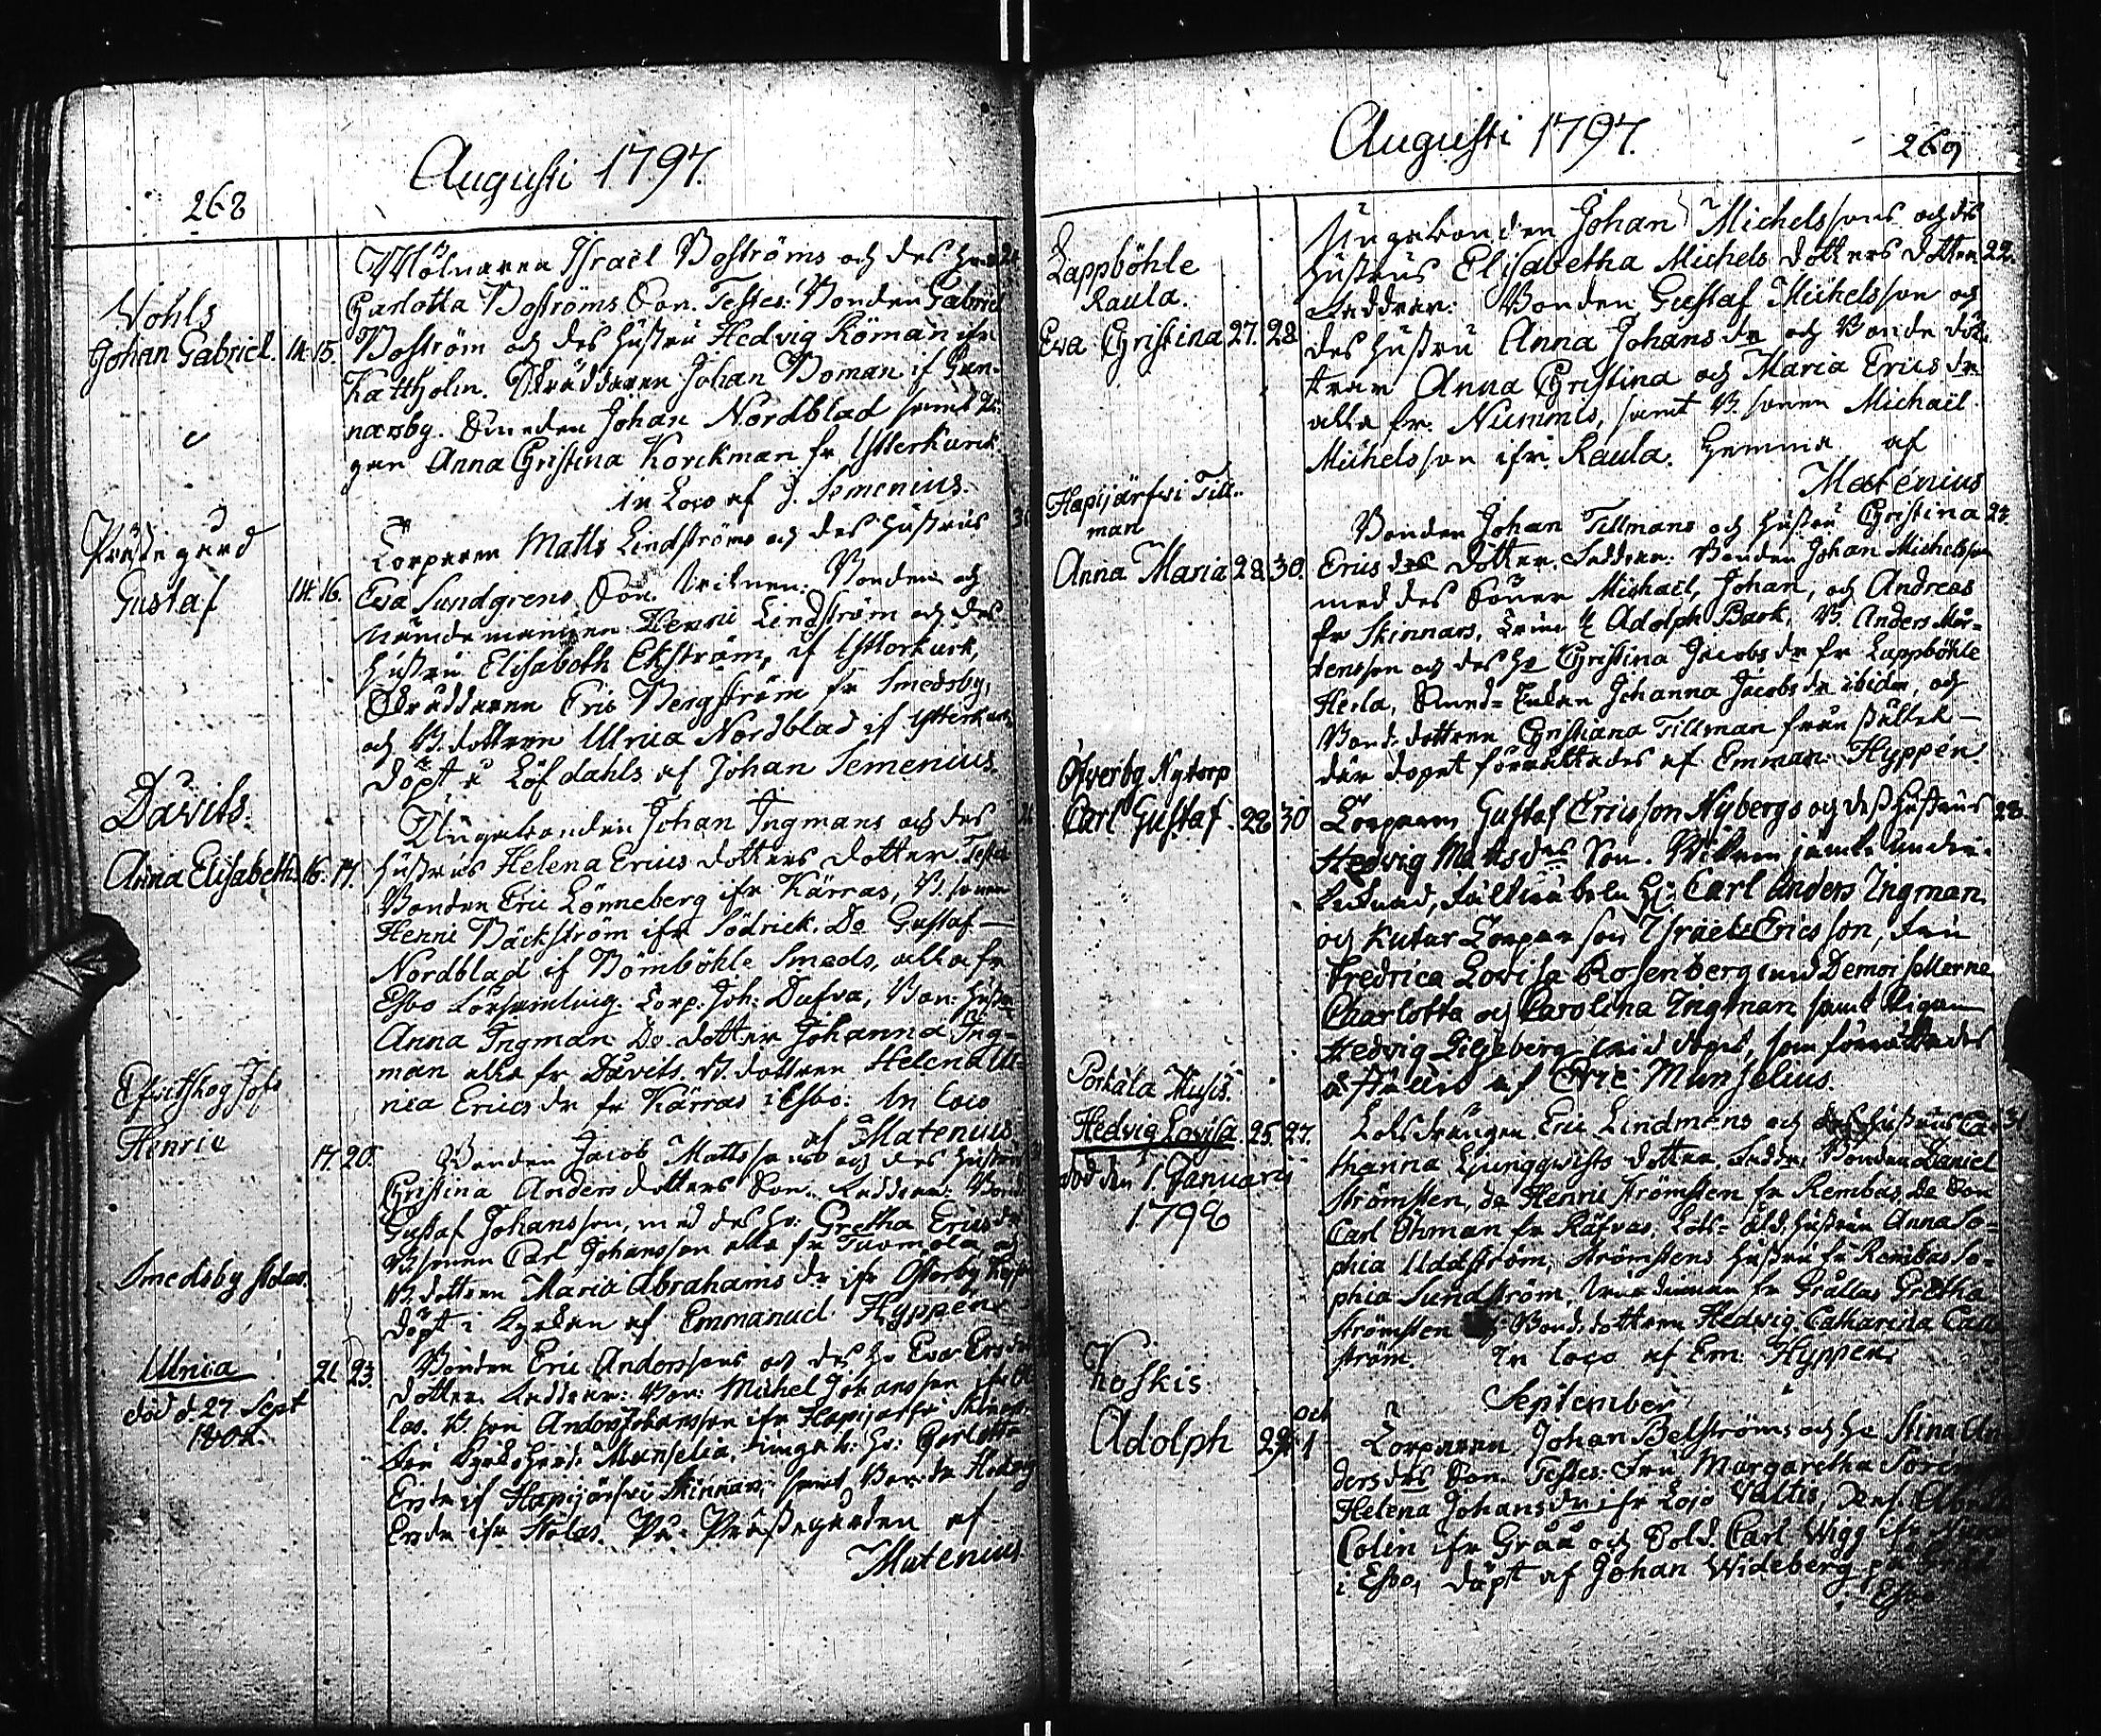 268
Augusti 1797.
Wohls
Johan Gabriel. 14. 15.
Mölnaren Israël Boströms och des
Charlotta Boströms Son. Testes: Bonden Gabriel
Boström och des hustru Hedvig Römàn ifr
Kattholm. Skräddaren Johan Boman if Gun-
narsby. Smeden Johan Nordblad samt Pi-
gan Anna Christina Korckman fr Ytterkurk.
in Loco af J. Semenius.
Prästegård
Gustaf 14. 16.
Torparen Matts Lindströms och des hustrus
Eva Sundgrens Son. Witnen: Bonden och
Nämdemannen Henric Lindström och des
hustru Elisabeth Ekström, if Ytterkurk,
Skräddaren Eric Bergström fr Smedsby,
och B. dottren Ulrica Nordblad if Ytterkurk
döpt å Löfdahls af Johan Semenius.
Davits.
Anna Elisabeth 16. 17.
Ungabonden Johan Ingmans och des
hustrus Helena Erics dotters dotter. Testes
Bonden Eric Lönneberg ifr Kärras, B. sonen
Henric Bäckström ifr Södrick. Do Gustaf
Nordblad if Bömböhle Smeds, alla fr
Esbo Församling. Torp: Joh: Dufva, Bon: hustr
Anna Ingman Do dotter Johanna Ing-
man alla fr Davits. B. dottren Helena Ul-
rica Erics dr fr Kärras i Esbo. In Loco
af Matenius
Henric 17. 20.
Bonden Jacob Mattssons och des hustrus
Christina Anders dotters Son. Faddrar: Bond
Gustaf Johansson, med des hr: Gretha Erics dr
B. sonen Carl Johansson alla fr Tuomola, och
B. dottren Maria Abrahams dr ifr Öfverby
döpt i Kyrkan af Emmanuel Hyppén
Smedsby
Ulrica 21. 23.
död d. 27 Sept
Bonden Eric Anderssons och des hr Eva Ers dr
dotter. Faddrar: Bon: Michel Johansson
las. B. son Anders Johansson ifr Hapijärfvi Skinnars
Fru Kyrkoherd: Munselia, Ungab: hr: Charlotta
Ers dr if Hapijärfvi Skinnars samt Bon: dr Hedvig
Ers dr ifr Stolas. På Prästegården af
Matenius.
Augusti 1797.
269
Lappböhle
Raula.
Eva Christina 27. 28
Ungabonden Johan Michelssons och des
hustrus Elisabetha Michels dotters dotter 22.
Faddrar: Bonden Gustaf Michelsson och
des hustru Anna Johans dr och Bonde döt-
trar Anna Christina och Maria Erics dr
alla fr. Nummls, samt B. sonen Michaël
Michelsson ifr. Raula. Hemma af
Matenius
Hapijärfvi Till-
man
Anna Maria 28 30.
Bonden Johan Tillmans och hustru Christina 23.
Erics drs dotter. Faddrar: Bonden Johan Michelsson
med des Söner Michaël, Johan, och Andreas
fr Skinnars, Adolph Bark, B. Anders Mår-
tensson och des hr Christina Jacobs dr fr Lappböhle
Herla, Johanna Jacobs dr ibidm, och
Bond. dottren Christiana Tillman från stället
där dopet förrättades af Emman: Hyppén.
Öfverby Nytorp
Carl Gustaf 28 30
Torparen Gustaf Ericsson Nybergs och dess hustrus 28
Hedvig Matts drs Son. Witnen
Hr: Carl Anders Ingman,
och Kutar Torpar son Israël Ericsson, Fru
Fredrica Lovisa Rosenberg Demoisellerne
Charlotta och Carolina Ingman samt Pigan
Hedvig Liljeberg wid dopet, som förrättades
af Eric Munselius.
Porkala
Hedvig Lovisa. 25. 27.
död den 1. January
1798
Lotsdrängen Eric Lindméns och des hustrus Ca- 31
tharina Ljungqwists dotter. Faddr. Bonden Daniel
Strömsten, do Henric Strömsten fr Rembas, do Son
Carl Öhman fr Räfvas. Lots-åld. hustrun Anna So-
phia Uddström, Strömstens hustru fr Rembas So-
phia Sundström, fr Grållas Gretha
Strömsten och Bond. dottren Hedvig Catharina Eke-
ström. In loco af Em: Hyppén.
September
Koskis
Adolph 29. och 1
Torparen Johan Belströms och hr Stina An-
ders drs Son. Testes: Fru Margaretha Sorén
Helena Johans dr ifr Lojo Valtis,
Colin ifr Gråå och Sold. Carl Wigg ifr
i Esbo, döpt af Johan Wideberg på
i Esbo